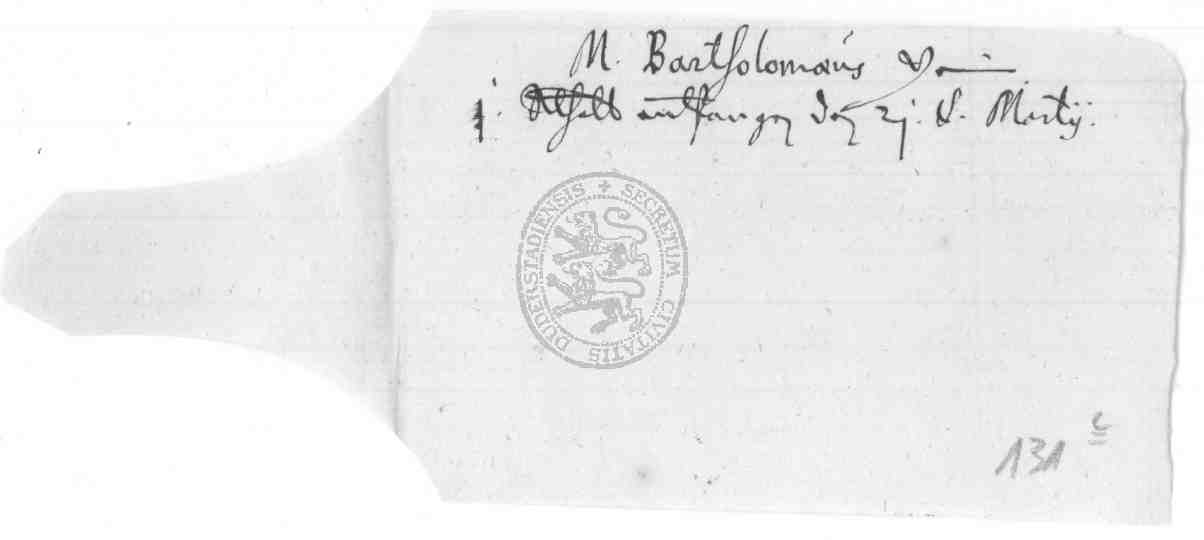 M. Bartholomäus
entfangen den 2j. d. Martij.
SECRETUM CIVITATIS DUDERSTADIENSIS
131 c